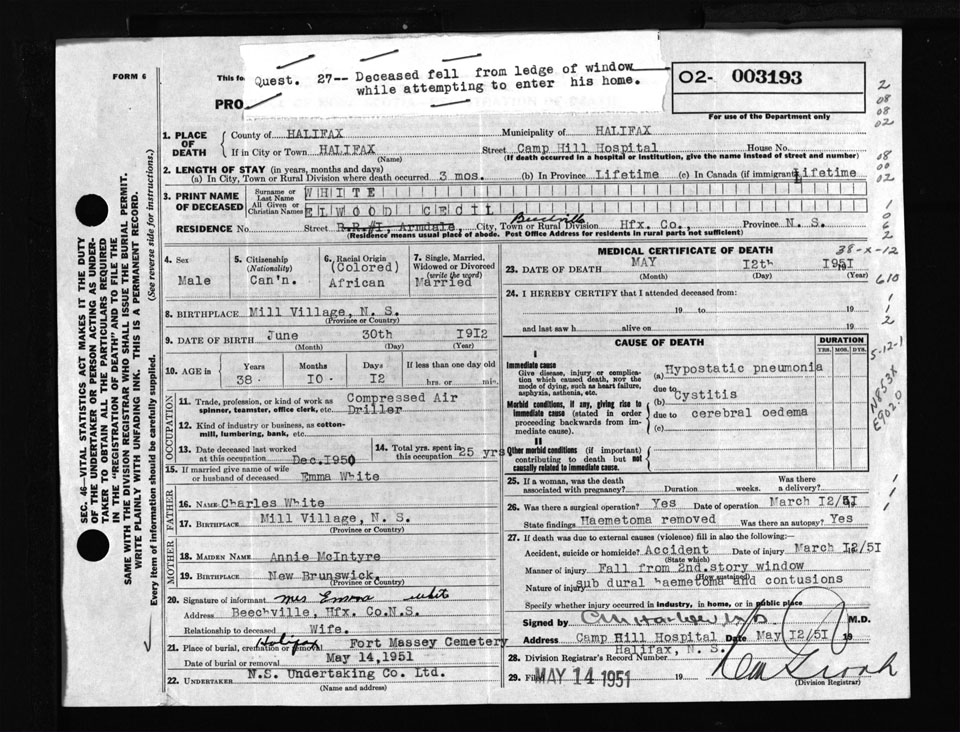 FORM 6
This fo
Quest. 27-- Deceased fell from ledge of window
while attempting to enter his home.
PRO
O2- 003193
For use of the Department only
1. PLACE OF DEATH
County of HALIFAX Municipality of HALIFAX
If in City or Town HALIFAX Street Camp Hill Hospital House No.
(Name) (If death occurred in a hospital or institution, give the name instead of street and number)
2. LENGTH OF STAY (in years, months and days)
(a) In City, Town or Rural Division where death occurred 3 mos. (b) In Province Lifetime (c) In Canada (if immigrant) Lifetime
3. PRINT NAME OF DECEASED
Surname or Last Name WHITE
All Given or Christian Names ELWOOD CECIL
RESIDENCE No. Street R.R.#1, Armdale, City, Town or Rural Division Beechville Hfx. Co., Province N. S.
(Residence means usual place of abode. Post Office Address for residents in rural parts not sufficient)
4. Sex
Male
5. Citizenship (Nationality)
Can'n.
6. Racial Origin
(Colored)
African
7. Single, Married, Widowed or Divorced (write the word)
Married
8. BIRTHPLACE Mill Village, N. S.
(Province or Country)
9. DATE OF BIRTH June 30th 1912
(Month) (Day) (Year)
10. AGE in Years Months Days If less than one day old
38 10 12 hrs. or min.
OCCUPATION
11. Trade, profession, or kind of work as spinner, teamster, office clerk, etc. Compressed Air Driller
12. Kind of industry or business, as cotton-mill, lumbering, bank, etc.
13. Date deceased last worked at this occupation Dec. 1950
14. Total yrs. spent in this occupation 25 yrs
15. If married give name of wife or husband of deceased Emma White
FATHER
16. NAME Charles White
17. BIRTHPLACE Mill Village, N. S.
(Province or Country)
MOTHER
18. MAIDEN NAME Annie McIntyre
19. BIRTHPLACE New Brunswick.
(Province or Country)
20. Signature of informant Mrs Emma White
Address Beechville, Hfx. Co.N.S.
Relationship to deceased Wife.
21. Place of burial, cremation or removal Halifax Fort Massey Cemetery
Date of burial or removal May 14, 1951
22. UNDERTAKER N.S. Undertaking Co. Ltd.
(Name and address)
MEDICAL CERTIFICATE OF DEATH
38-x-12
23. DATE OF DEATH MAY 12th 1951
(Month) (Day) (Year)
24. I HEREBY CERTIFY that I attended deceased from:
19 to 19
and last saw h alive on 19
CAUSE OF DEATH
DURATION
YRS. MOS. DYS.
I
Immediate cause
Give disease, injury or complication which caused death, not the mode of dying, such as heart failure, asphyxia, asthenia, etc.
(a) Hypostatic pneumonia
due to
(b) Cystitis
due to cerebral oedema
(c)
Morbid conditions, if any, giving rise to immediate cause (stated in order proceeding backwards from immediate cause).
II
Other morbid conditions (if important) contributing to death but not causally related to immediate cause.
25. If a woman, was the death associated with pregnancy? Duration weeks. Was there a delivery?
26. Was there a surgical operation? Yes Date of operation March 12/51
State findings Haemetoma removed Was there an autopsy? Yes
27. If death was due to external causes (violence) fill in also the following:—
Accident, suicide or homicide? Accident Date of injury March 12/51
(State which)
Manner of injury Fall from 2nd.story window
(How sustained)
Nature of injury sub dural haemetoma and contusions
Specify whether injury occurred in industry, in home, or in public place
Signed by M.D.
Address Camp Hill Hospital Date May 12/51 19
Halifax, N. S.
28. Division Registrar's Record Number
29. Filed MAY 14 1951 19
(Division Registrar)
SEC. 46—VITAL STATISTICS ACT MAKES IT THE DUTY
OF THE UNDERTAKER OR PERSON ACTING AS UNDER-
TAKER TO OBTAIN ALL THE PARTICULARS REQUIRED
IN THE "REGISTRATION OF DEATH" AND TO FILE THE
SAME WITH THE DIVISION REGISTRAR WHO SHALL ISSUE THE BURIAL PERMIT.
WRITE PLAINLY WITH UNFADING INK. THIS IS A PERMANENT RECORD.
Every item of information should be carefully supplied. (See reverse side for instructions.)
2
08
08
02
08
00
02
1
0
6
2
610
1
1
2
5-12-1
N853X
E902.0
1
1
1